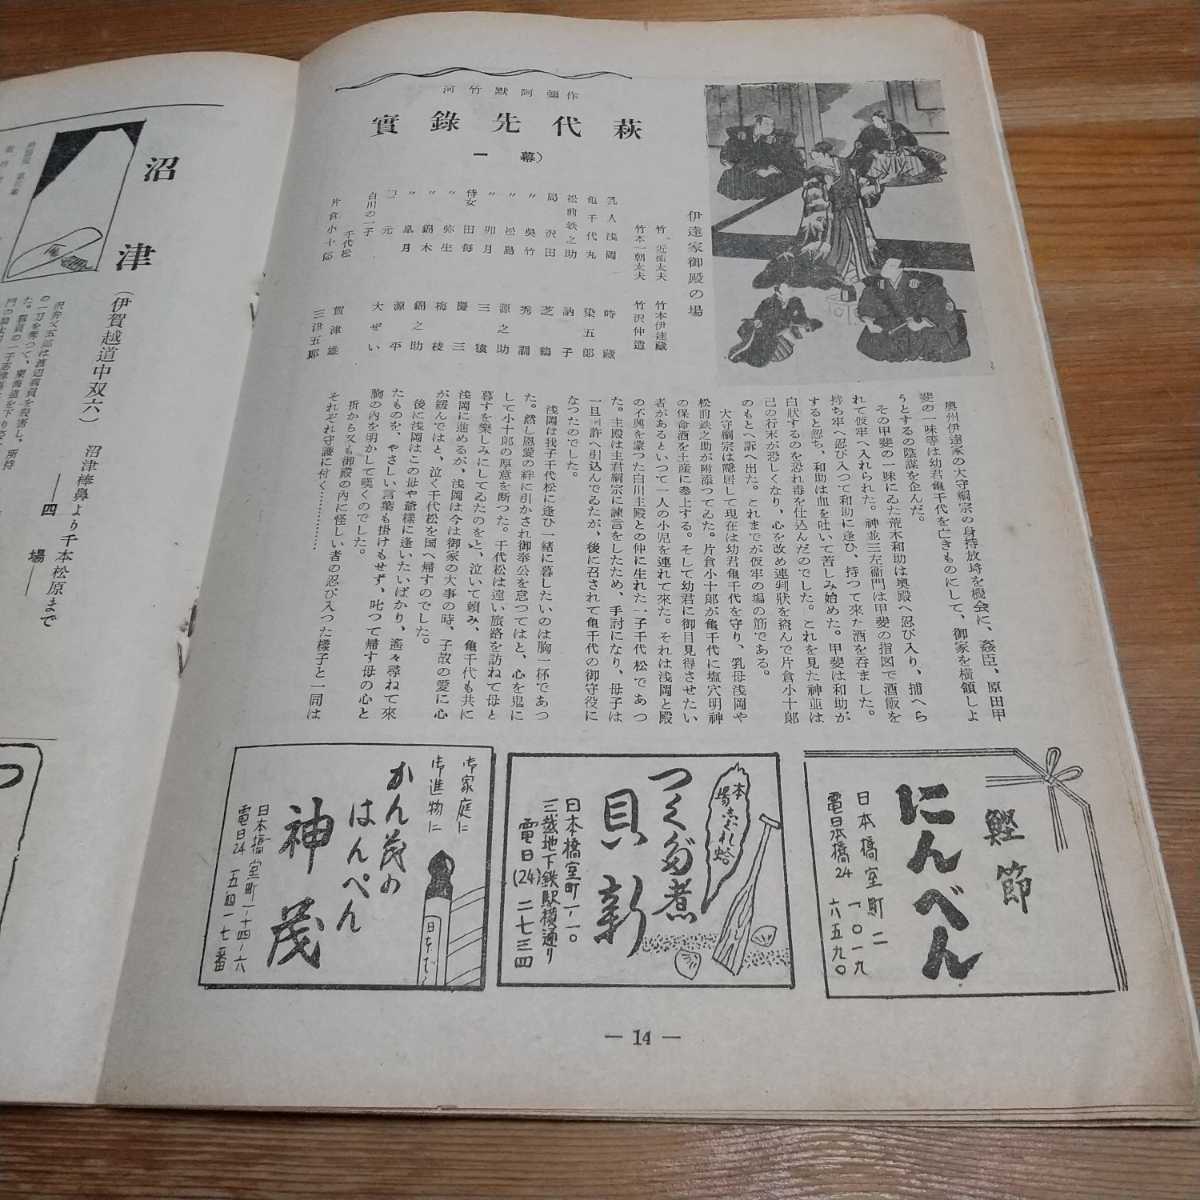 河竹默阿彌作
實錄先代萩
(一幕)
伊達家御殿の場
竹本朝太夫
竹本伊達蔵
竹沢仲造
乳人浅岡 時蔵
亀千代丸 染五郎
松前鉄之助 訥子
局沢田 芝鶴
〃呉竹 秀調
〃松島 源之助
〃卯月
〃弥生 慶三
〃錦木 錦之助
〃皐月 源平
千代松 賀津雄
片倉小十郎 三津五郎
奥州伊達家の大守綱宗の身持放埓を機会に、姦臣、原田甲
斐の一味等は幼君亀千代を亡きものにして、御家を横領しよ
うとするの陰謀を企んだ。
その甲斐の一味にゐた荒木和助は奥殿へ忍び入り、捕へら
れて仮牢へ入れられた。神並三左衞門は甲斐の指図で酒飯を
持ち牢へ忍び入つて和助に逢ひ、持つて来た酒を呑ました。
すると忽ち、和助は血を吐いて苦しみ始めた。甲斐は和助が
白状するのを恐れ毒を仕込んだのでした。これを見た神並は
己の行末が恐しくなり、心を改め連判状を盗んで片倉小十郎
のもとへ訴へ出た。これまでが仮牢の場の筋である。
大守綱宗は隠居して現在は幼君亀千代を守り、乳母浅岡や
松前鉄之助が附添つてゐた。片倉小十郎が亀千代に塩穴明神
の保命酒を土産に参上する。そして幼君に御目見得させたい
者があるといつて一人の小児を連れて來た。それは浅岡と殿
の不興を蒙つた白川主殿との仲に生れた一子千代松であつ
た。主殿は主君綱宗に諫言をしたため、手討になり、母子は
一旦国許へ引込んでゐたが、後に召されて亀千代の御守役に
なつたのでした。
浅岡は我子千代松に逢ひ一緒に暮したいのは胸一杯であつ
た。然し恩愛の絆に引かされ御奉公を怠つてはと、心を鬼に
して小十郎の厚意を断つた。千代松は遠い旅路を訪ねて母と
暮すを楽しみにしてゐたのをと、泣いて頼み、亀千代も共に
浅岡に進めるが、浅岡は今は御家の大事の時、子故の愛に心
が緩んではと、泣く千代松を国へ帰すのでした。
後に浅岡はこの母や爺様に逢いたいばかり、遙々尋ねて來
たものを、やさしい言葉も掛けもせず、叱つて帰す母の心と
胸の内を明かして嘆くのでした。
折から又も御殿の内に怪しい者の忍び入つた様子と一同は
それぞれ守護に付く…………
鰹節
にんべん
日本橋室町二ノ一
電日本橋24 六五九〇
本場 蛤
つくだ煮
貝新
日本橋室町一ノ一〇
三越地下鉄駅横通り
電日(24)二七三四
御家庭に
御進物に
かん茂の
はんぺん
神茂
日本橋室町一ノ十四ノ六
電日24 五四一七番
— 14 —
沼津
(伊賀越道中双六)
沼津棒鼻より千本松原まで
——四場——